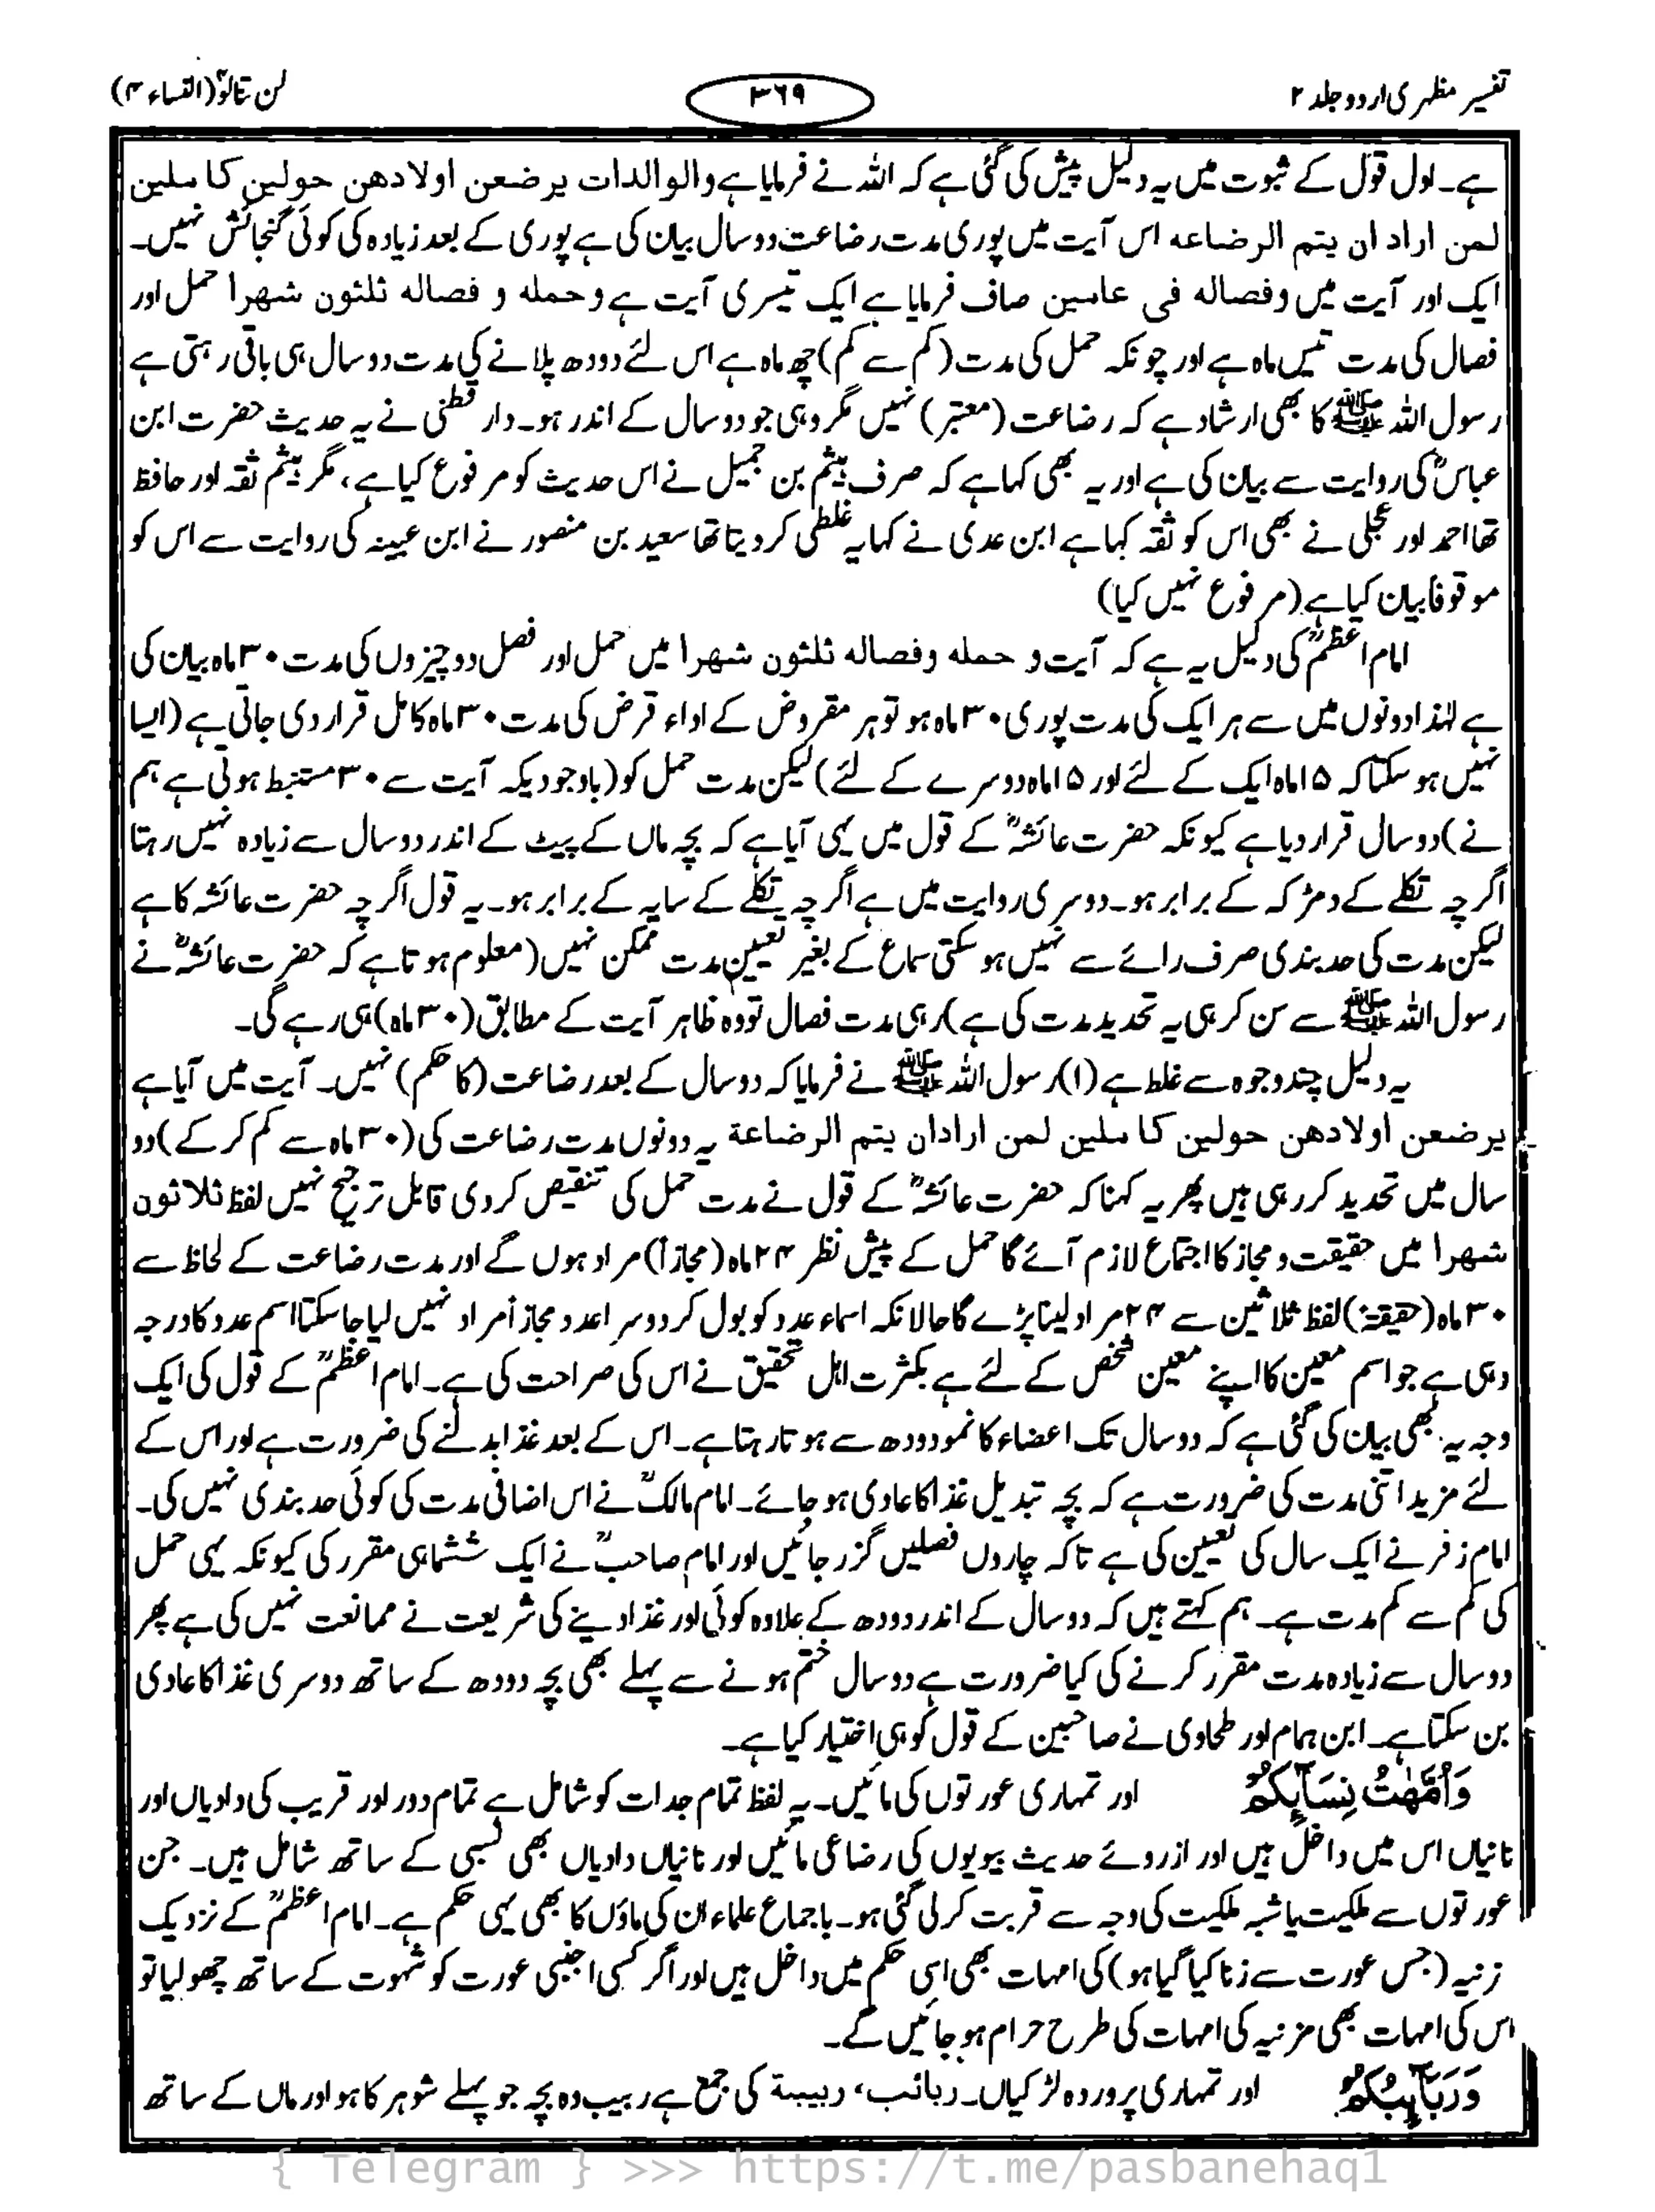 تفسیر مظہری اردو جلد ۲
۳۶۹
لن تنالوٓ (النساء ۴)
ہے۔ اول قول کے ثبوت میں یہ دلیل پیش کی گئی ہے کہ اللہ نے فرمایا ہے والوالدات یرضعن اولادھن حولین کاملین
لمن اراد ان یتم الرضاعه اس آیت میں پوری مدت رضاعت دو سال بیان کی ہے پوری کے بعد زیادہ کی کوئی گنجائش نہیں۔
ایک اور آیت میں وفصاله فی عامین صاف فرمایا ہے ایک تیسری آیت ہے وحمله و فصاله ثلثون شهرا حمل اور
فصال کی مدت تیس ماہ ہے اور چونکہ حمل کی مدت (کم سے کم) چھ ماہ ہے اس لئے دودھ پلانے کی مدت دو سال ہی باقی رہتی ہے
رسول اللہ ﷺ کا بھی ارشاد ہے کہ رضاعت (معتبر) نہیں مگر وہی جو دو سال کے اندر ہو۔ دار قطنی نے یہ حدیث حضرت ابن
عباسؓ کی روایت سے بیان کی ہے اور یہ بھی کہا ہے کہ صرف ہیثم بن جمیل نے اس حدیث کو مرفوع کیا ہے، مگر ہیثم ثقہ اور حافظ
تھا احمد اور عجلی نے بھی اس کو ثقہ کہا ہے ابن عدی نے کہا یہ غلطی کر دیتا تھا سعید بن منصور نے ابن عیینہ کی روایت سے اس کو
موقوفاً بیان کیا ہے (مرفوع نہیں کیا)
امام اعظمؒ کی دلیل یہ ہے کہ آیت و حمله وفصاله ثلثون شهرا میں حمل اور فصل دو چیزوں کی مدت ۳۰ ماہ بیان کی
ہے لہٰذا دونوں میں سے ہر ایک کی مدت پوری ۳۰ ماہ ہو تو ہر مقروض کے اداء قرض کی مدت ۳۰ ماہ کامل قرار دی جاتی ہے (ایسا
نہیں ہو سکتا کہ ۱۵ ماہ ایک کے لئے اور ۱۵ ماہ دوسرے کے لئے) لیکن مدت حمل کو (باوجودیکہ آیت سے ۳۰ مستنبط ہوتی ہے ہم
نے) دو سال قرار دیا ہے کیونکہ حضرت عائشہؓ کے قول میں یہی آیا ہے کہ بچہ ماں کے پیٹ کے اندر دو سال سے زیادہ نہیں رہتا
اگرچہ تکلے کے دمڑکہ کے برابر ہو۔ دوسری روایت میں ہے اگرچہ تکلے کے سایہ کے برابر ہو۔ یہ قول اگرچہ حضرت عائشہ کا ہے
لیکن مدت کی حد بندی صرف رائے سے نہیں ہو سکتی سماع کے بغیر تعیین مدت ممکن نہیں (معلوم ہوتا ہے کہ حضرت عائشہؓ نے
رسول اللہ ﷺ سے سن کر ہی یہ تحدید مدت کی ہے) رہی مدت فصال تو وہ ظاہر آیت کے مطابق (۳۰ ماہ) ہی رہے گی۔
یہ دلیل چند وجوہ سے غلط ہے (۱) رسول اللہ ﷺ نے فرمایا کہ دو سال کے بعد رضاعت (کا حکم) نہیں۔ آیت میں آیا ہے
یرضعن اولادھن حولین کاملین لمن ارادان یتم الرضاعة یہ دونوں مدت رضاعت کی (۳۰ ماہ سے کم کر کے) دو
سال میں تحدید کر رہی ہیں پھر یہ کہنا کہ حضرت عائشہؓ کے قول نے مدت حمل کی تنقیص کر دی قابل ترجیح نہیں لفظ ثلاثون
شهرا میں حقیقت و مجاز کا اجتماع لازم آئے گا حمل کے پیش نظر ۲۴ ماہ (مجازاً) مراد ہوں گے اور مدت رضاعت کے لحاظ سے
۳۰ ماہ (حقیقۃً) لفظ ثلاثین سے ۲۴ مراد لینا پڑے گا حالانکہ اسماء عدد کو بول کر دوسرا عدد مجازاً مراد نہیں لیا جا سکتا اسم عدد کا درجہ
وہی ہے جو اسم معین کا اپنے معین شخص کے لئے ہے بکثرت اہل تحقیق نے اس کی صراحت کی ہے۔ امام اعظمؒ کے قول کی ایک
وجہ یہ بھی بیان کی گئی ہے کہ دو سال تک اعضاء کا نمو دودھ سے ہوتا رہتا ہے۔ اس کے بعد غذا بدلنے کی ضرورت ہے اور اس کے
لئے مزید اتنی مدت کی ضرورت ہے کہ بچہ تبدیل غذا کا عادی ہو جائے۔ امام مالکؒ نے اس اضافی مدت کی کوئی حد بندی نہیں کی۔
امام زفر نے ایک سال کی تعیین کی ہے تاکہ چاروں فصلیں گزر جائیں اور امام صاحبؒ نے ایک ششماہی مقرر کی کیونکہ یہی حمل
کی کم سے کم مدت ہے۔ ہم کہتے ہیں کہ دو سال کے اندر دودھ کے علاوہ کوئی اور غذا دینے کی شریعت نے ممانعت نہیں کی ہے پھر
دو سال سے زیادہ مدت مقرر کرنے کی کیا ضرورت ہے دو سال ختم ہونے سے پہلے بھی بچہ دودھ کے ساتھ دوسری غذا کا عادی
بن سکتا ہے۔ ابن ہمام اور طحاوی نے صاحبین کے قول کو ہی اختیار کیا ہے۔
وَاُمَّهٰتُ نِسَآئِكُمْ اور تمہاری عورتوں کی مائیں۔ یہ لفظ تمام جدات کو شامل ہے تمام دور اور قریب کی دادیاں اور
نانیاں اس میں داخل ہیں اور ازروئے حدیث بیویوں کی رضاعی مائیں اور نانیاں دادیاں بھی نسبی کے ساتھ شامل ہیں۔ جن
عورتوں سے ملکیت یا شبہ ملکیت کی وجہ سے قربت کر لی گئی ہو۔ باجماع علماء ان کی ماؤں کا بھی یہی حکم ہے۔ امام اعظمؒ کے نزدیک
زنیہ (جس عورت سے زنا کیا گیا ہو) کی امہات بھی اسی حکم میں داخل ہیں اور اگر کسی اجنبی عورت کو شہوت کے ساتھ چھو لیا تو
اس کی امہات بھی مزنیہ کی امہات کی طرح حرام ہو جائیں گے۔
وَرَبَآئِبُكُمُ اور تمہاری پروردہ لڑکیاں۔ ربائب، ربیبة کی جمع ہے ربیب وہ بچہ جو پہلے شوہر کا ہو اور ماں کے ساتھ
{ Telegram } >>> https://t.me/pasbanehaq1